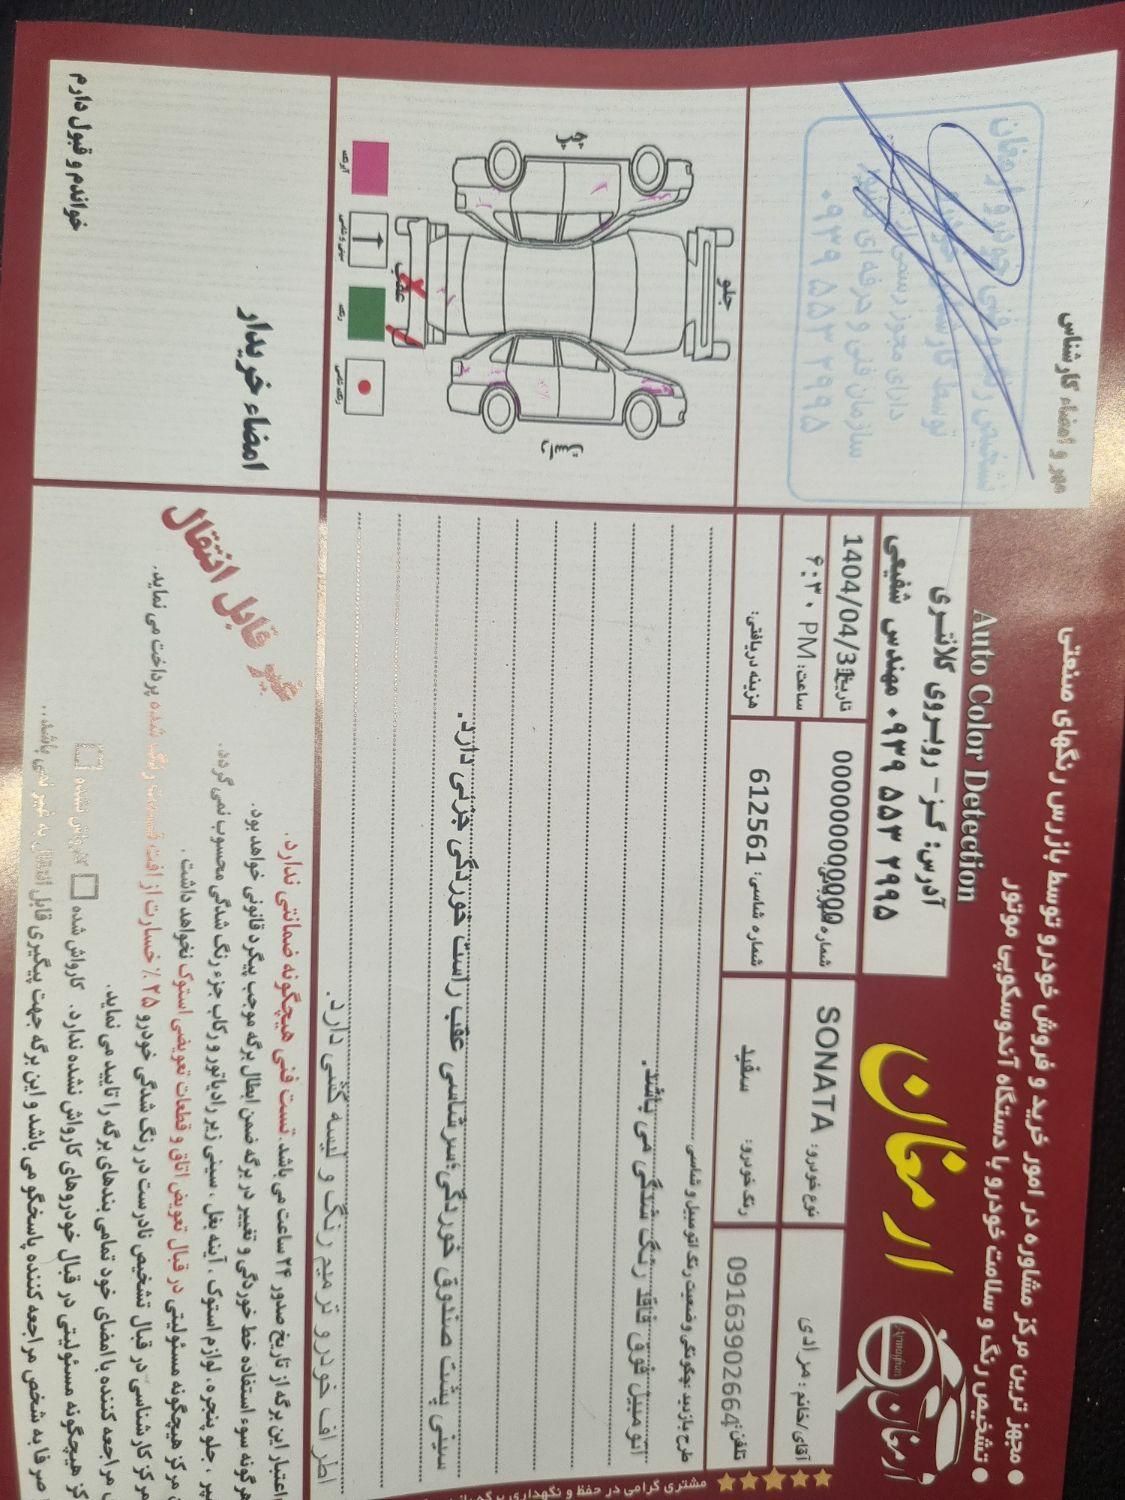 ● مجهز ترین مرکز مشاوره در امور خرید و فروش خودرو توسط بازرس رنگهای صنعتی
● تشخیص رنگ و سلامت خودرو با دستگاه آندوسکوپی موتور
Auto Color Detection
ارمغان
Armaghan
ارمغان
آدرس: گز - روبروی کلانتری
۰۹۳۹ ۵۵۳ ۲۹۹۵ مهندس شفیعی
آقای/خانم: مرادی
نوع خودرو: SONATA
شماره 0000000000000
تاریخ: 1404/04/31
ساعت: ۶:۳۰ PM
تلفن: 09163902664
رنگ خودرو: سفید
شماره شاسی: 612561
هزینه دریافتی:
مهر و امضاء کارشناس
تشخیص رنگ فنی خودرو ارمغان
توسط کارشناس خودرو
دارای مجوز رسمی از
سازمان فنی و حرفه ای
۰۹۳۹ ۵۵۳ ۲۹۹۵
طرح بازدید چگونگی وضعیت رنگ اتومبیل و شاسی
اتومبیل فوق فاقد رنگ شدگی می باشد.
سینی پشت صندوق خوردگی؛سرشاسی عقب راست خوردگی جزئی دارد.
اطراف خودرو ترمیم رنگ و لیسه گشی دارد.
جلو
عقب
چپ
راست
رنگ
امضاء خریدار
خواندم و قبول دارم
غیر قابل انتقال
اعتبار این برگه از تاریخ صدور ۲۴ ساعت می باشد. تست فنی هیچگونه ضمانتی ندارد.
هرگونه سوء استفاده خط خوردگی و تغییر در برگه ضمن ابطال برگه موجب پیگرد قانونی خواهد بود.
، جلو پنجره، لوازم استوک، آینه بغل، سینی زیر رادیاتور و رکاب جزء رنگ شدگی محسوب نمی گردد.
مرکز هیچگونه مسئولیتی در قبال تعویض اتاق و قطعات تعویضی استوک نخواهد داشت.
مرکز کارشناسی در قبال تشخیص نادرست در رنگ شدگی خودرو ۲۵٪ خسارت از افت قیمت رنگ شده پرداخت می نماید.
مراجعه کننده با امضای خود تمامی بندهای برگه را تایید می نماید.
هیچگونه مسئولیتی در قبال خودروهای کارواش نشده ندارد. کارواش شده □ کارواش نشده □
صرفا به شخص مراجعه کننده پاسخگو می باشد و این برگه جهت پیگیری قابل انتقال به غیر نمی باشد..
مشتری گرامی در حفظ و نگهداری برگه